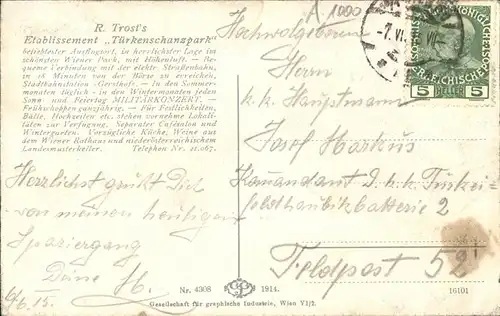 R. Trost's
Etablissement „Türkenschanzpark"
beliebtester Ausflugsort, in herrlichster Lage im
schönsten Wiener Park, mit Höhenluft. — Be-
queme Verbindung mit der elektr. Straßenbahn,
in 18 Minuten von der Börse zu erreichen,
Stadtbahnstation Gersthof. — In den Sommer-
monaten täglich - in den Wintermonaten jeden
Sonn- und Feiertag MILITÄRKONZERT. —
Feldkuhoppen ganzjährig. — Für Festlichkeiten,
Bälle, Hochzeiten etc. stehen vornehme Lokali-
täten zur Verfügung. Separater Cafésalon und
Wintergarten. Vorzügliche Küche; Weine aus
dem Wiener Rathaus und niederösterreichischem
Landesmusterkeller. Telephon Nr. 21.067.
Herzlichst grüßt Dich
von meinem heutigen
Spaziergang
Deine M.
6/6. 15.
A 1000
Hochwolgeboren
Herrn
k.k. Hauptmann
Josef Markus
Kommandant d. k.k. Türkei
feldhaubitzbatterie 2
Feldpost 52
5 HELLER 5
Nr. 4308 1914. 16101
Gesellschaft für graphische Industrie, Wien VI/2.